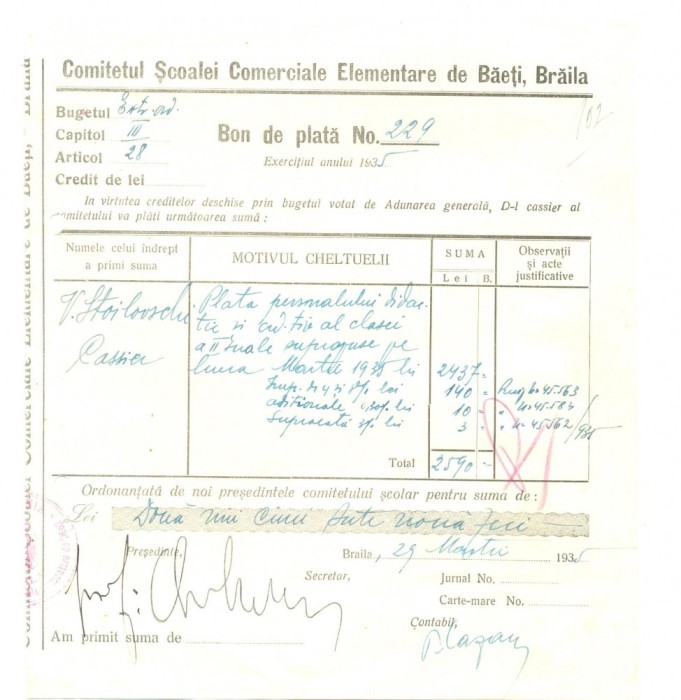 Comitetul Școalei Comerciale Elementare de Băeți, Brăila
Bugetul Extr. ord.
Capitol III
Articol 28
Credit de lei
Bon de plată No. 229
Exercițiul anului 1935
In virtutea creditelor deschise prin bugetul votat de Adunarea generală, D-l cassier al
comitetului va plăti următoarea sumă :
Numele celui îndrept a primi suma
MOTIVUL CHELTUELII
SUMA
Lei B.
Observații și acte justificative
V. Stoilovschi
Cassier
Plata personalului didac-
tic si ad-tiv al clasei
a II
pe
luna Martie 1935 lei 2437
Imp. lei 140
aditionale lei 10
Suprataxă lei 3
45.563
45.584
45.562/935
Total 2590
Ordonanțată de noi președintele comitetului școlar pentru suma de :
Lei Două mii cinci sute nouă zeci
Președinte,
Braila, 29 Martie 1935
Secretar,
Jurnal No.
Carte-mare No.
Contabil,
Am primit suma de
prof.